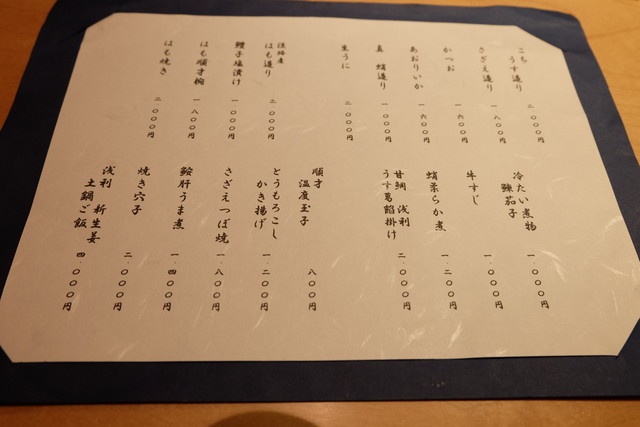 こち
うす造り
二、〇〇〇円
さざえ造り
一、八〇〇円
かつお
一、六〇〇円
あおりいか
一、六〇〇円
真 蛸造り
一、〇〇〇円
生うに
二、〇〇〇円
淡路産
はも造り
二、〇〇〇円
鱧子塩漬け
一、〇〇〇円
はも順才椀
一、八〇〇円
はも焼き
二、〇〇〇円
冷たい煮物
鰊茄子
一、〇〇〇円
牛すじ
一、〇〇〇円
蛸柔らか煮
一、二〇〇円
甘鯛 浅利
うす葛餡掛け
二、〇〇〇円
順才
温度玉子
八〇〇円
とうもろこし
かき揚げ
一、二〇〇円
さざえつぼ焼
一、八〇〇円
鮟肝うま煮
一、四〇〇円
焼き穴子
二、〇〇〇円
浅利 新生姜
土鍋ご飯
四、〇〇〇円